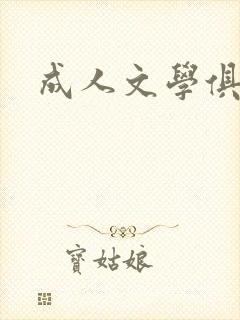 成人文學俱
寶姑娘